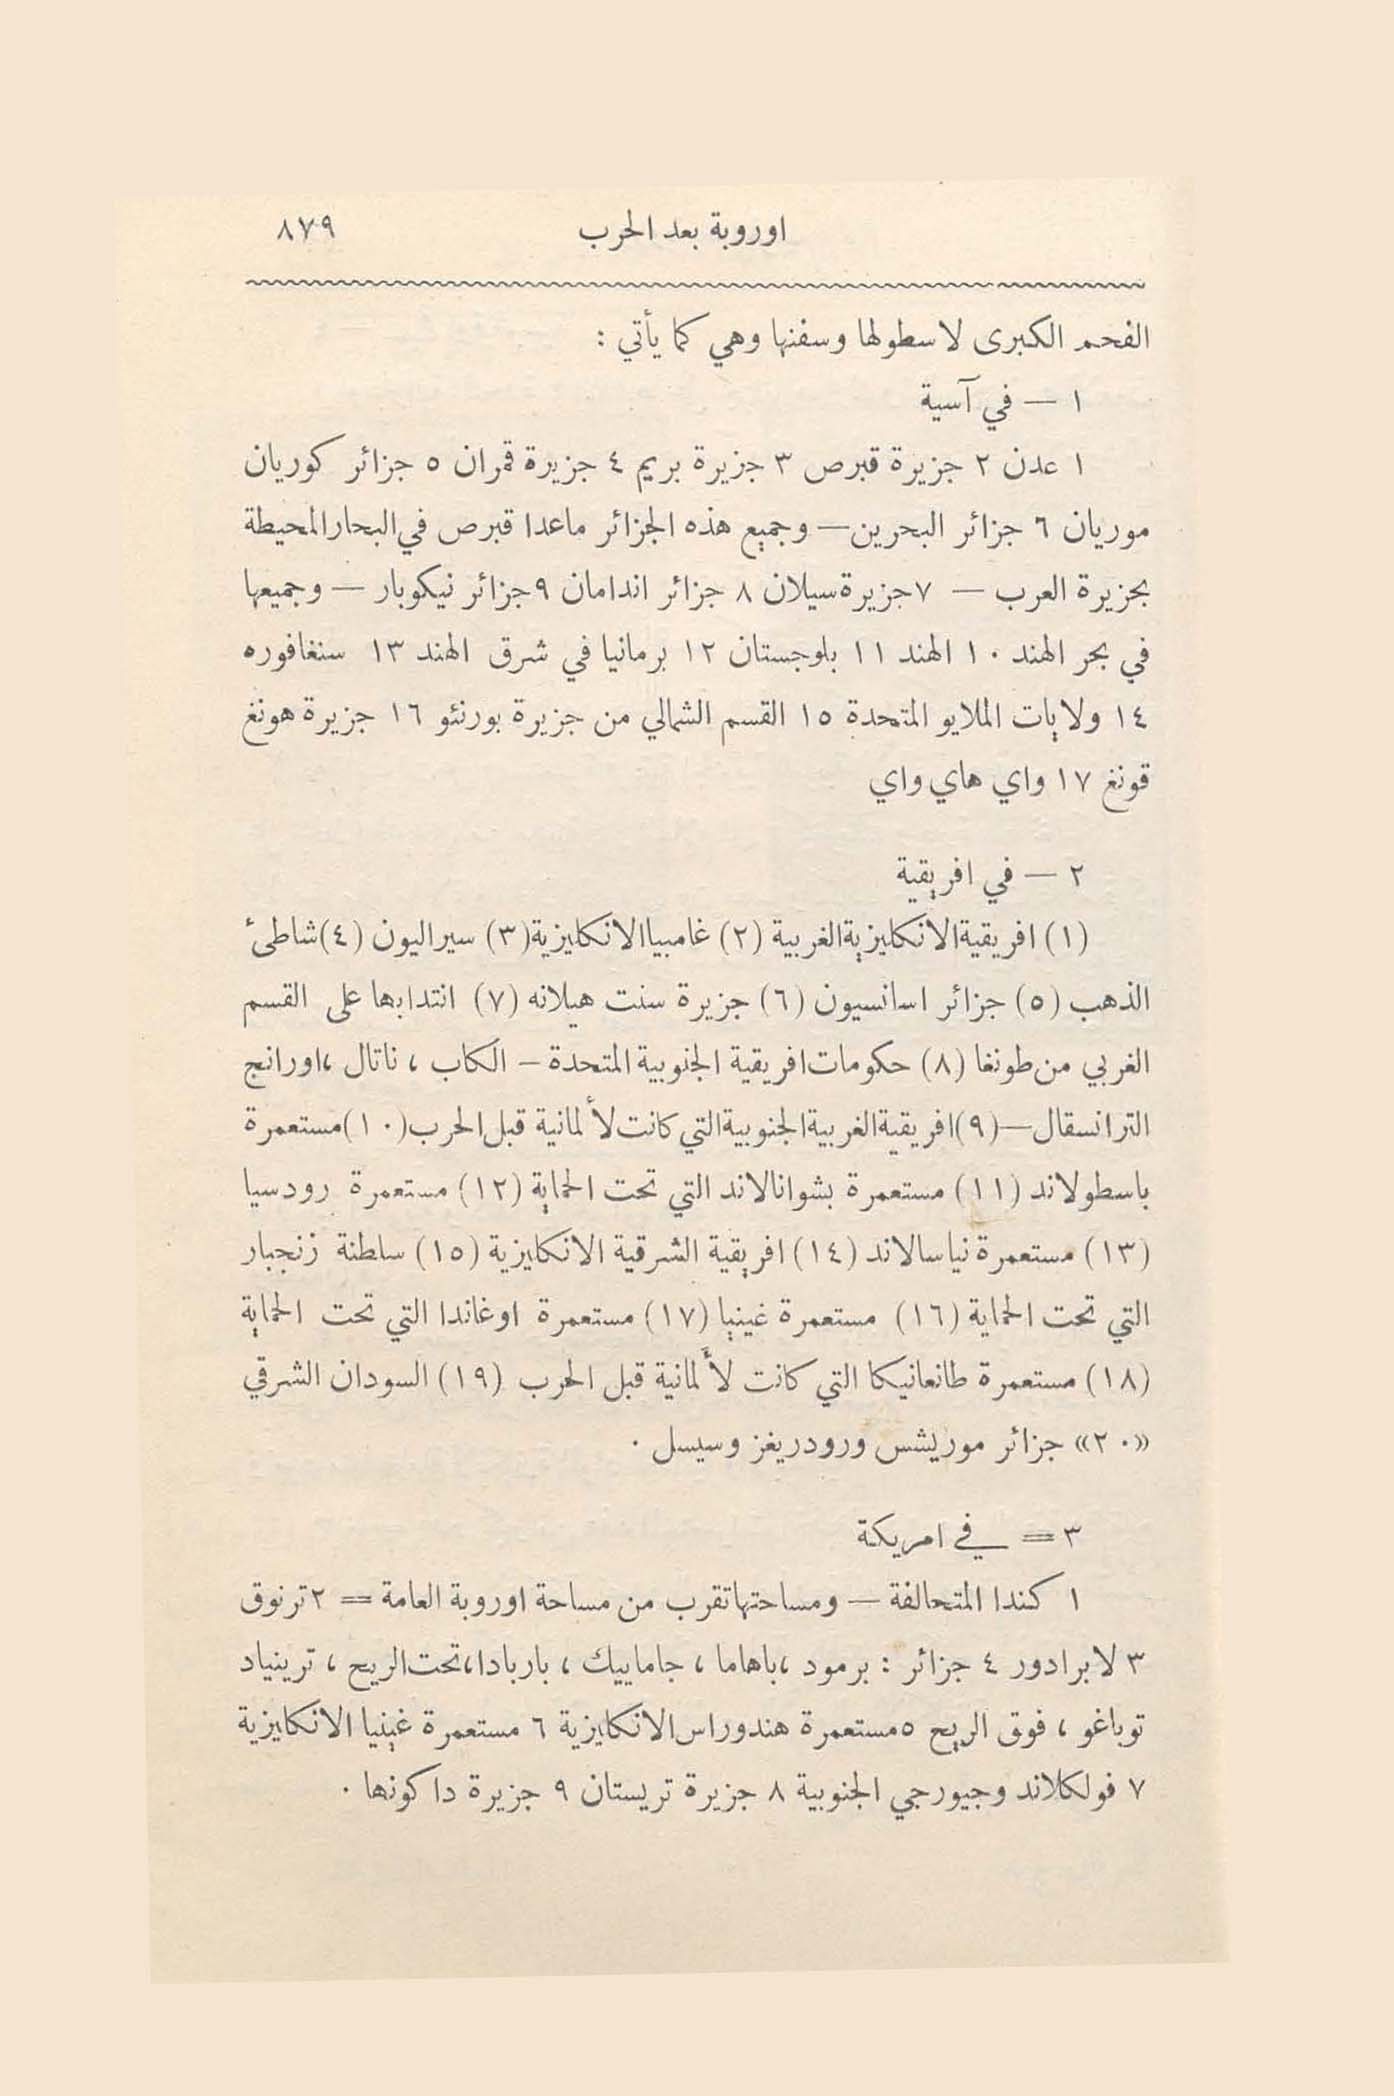 اوروبة بعد الحرب ٨٧٩
الفحم الكبرى لاسطولها وسفنها وهي كما يأتي :
١ — في آسية
١ عدن ٢ جزيرة قبرص ٣ جزيرة بريم ٤ جزيرة قمران ٥ جزائر كوريان
موريان ٦ جزائر البحرين — وجميع هذه الجزائر ماعدا قبرص في البحار المحيطة
بجزيرة العرب — ٧ جزيرة سيلان ٨ جزائر اندامان ٩ جزائر نيكوبار — وجميعها
في بحر الهند ١٠ الهند ١١ بلوجستان ١٢ برمانيا في شرق الهند ١٣ سنغافوره
١٤ ولايات الملايو المتحدة ١٥ القسم الشمالي من جزيرة بورنئو ١٦ جزيرة هونغ
قونغ ١٧ واي هاي واي
٢ — في افريقية
(١) افريقية الانكليزية الغربية (٢) غامبيا الانكليزية (٣) سيراليون (٤) شاطئ
الذهب (٥) جزائر اسانسيون (٦) جزيرة سنت هيلانه (٧) انتدابها على القسم
الغربي من طونغا (٨) حكومات افريقية الجنوبية المتحدة — الكاب ، ناتال ، اورانج
الترانسقال — (٩) افريقية الغربية الجنوبية التي كانت لألمانية قبل الحرب (١٠) مستعمرة
باسطولاند (١١) مستعمرة بشوانالاند التي تحت الحماية (١٢) مستعمرة رودسيا
(١٣) مستعمرة نياسالاند (١٤) افريقية الشرقية الانكليزية (١٥) سلطنة زنجبار
التي تحت الحماية (١٦) مستعمرة غينيا (١٧) مستعمرة اوغاندا التي تحت الحماية
(١٨) مستعمرة طانغانيكا التي كانت لألمانية قبل الحرب (١٩) السودان الشرقي
«٢٠» جزائر موريشس ورودريغز وسيسل .
٣ = في امريكة
١ كندا المتحالفة — ومساحتها تقرب من مساحة اوروبة العامة = ٢ ترنوق
٣ لابرادور ٤ جزائر : برمود ، باهاما ، جاماييك ، باربادا ، تحت الريح ، ترينياد
توباغو ، فوق الريح ٥ مستعمرة هندوراس الانكليزية ٦ مستعمرة غينيا الانكليزية
٧ فولكلاند وجيورجي الجنوبية ٨ جزيرة تريستان ٩ جزيرة داكونها .